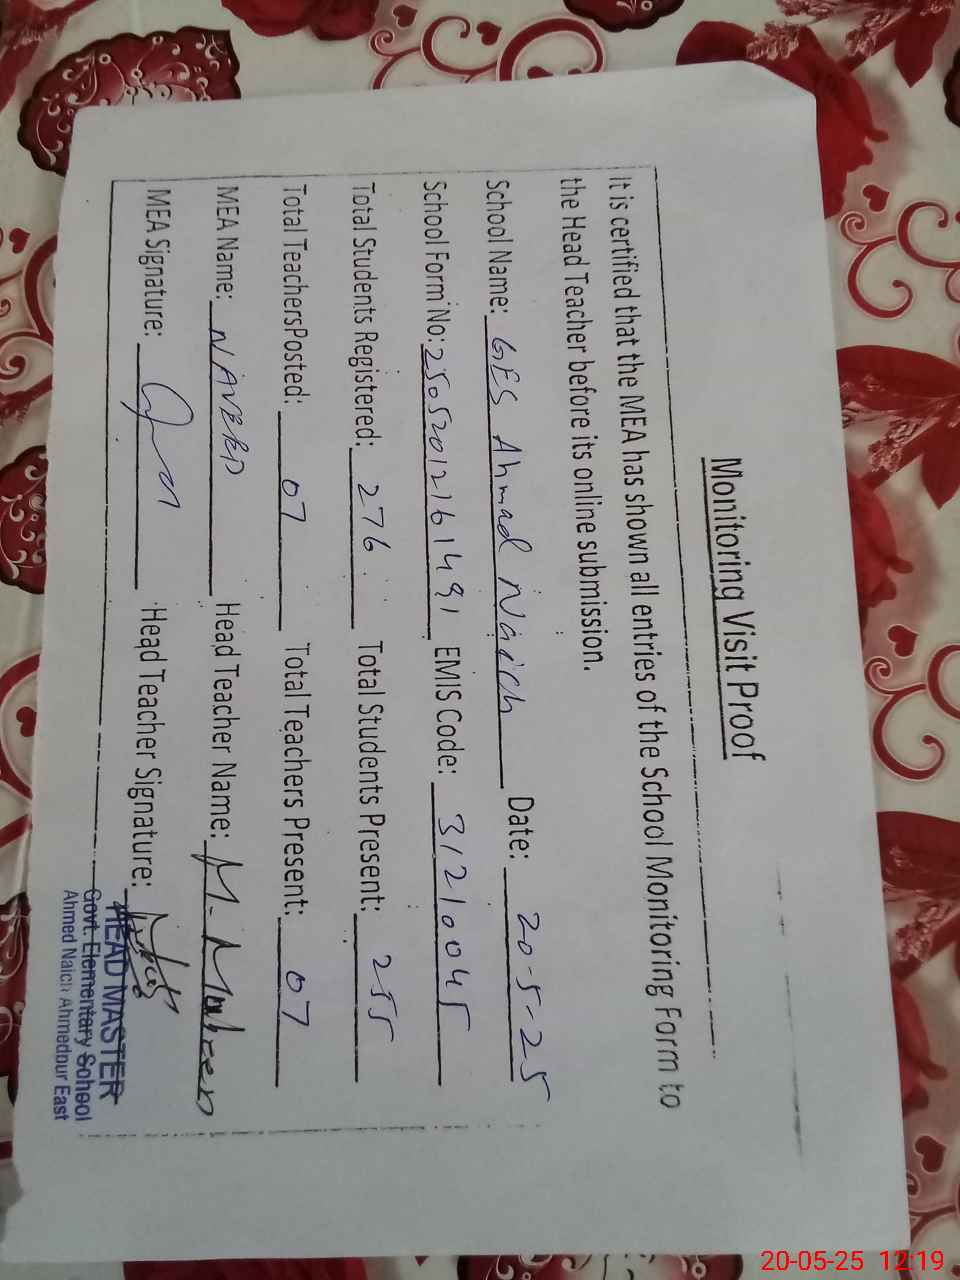 Monitoring Visit Proof
It is certified that the MEA has shown all entries of the School Monitoring Form to
the Head Teacher before its online submission.
School Name: GES Ahmad Naich Date: 20-5-25
School Form No: 25052012161491 EMIS Code: 31210045
Total Students Registered: 276 Total Students Present: 255
Total TeachersPosted: 07 Total Teachers Present: 07
MEA Name: NAVEED Head Teacher Name: M.
MEA Signature: Head Teacher Signature:
HEAD MASTER
Govt. Elementary School
Ahmed Naich Ahmedpur East
20-05-25 12:19